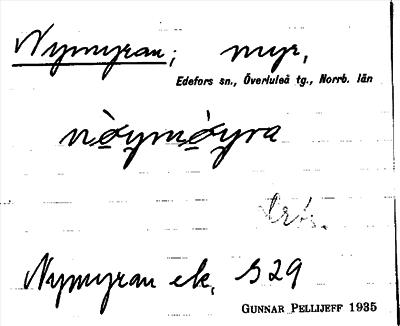 Nymyran; myr,
Edefors sn., Överluleå tg., Norrb. län
Nymyran ek. S 29
GUNNAR PELLIJEFF 1935